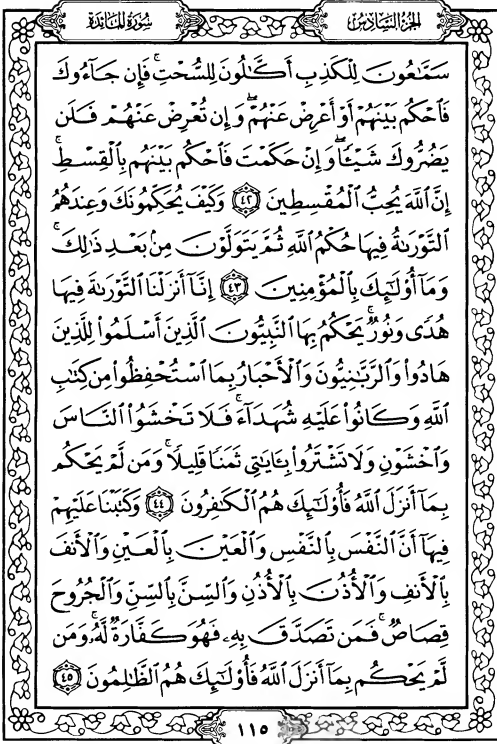 سُورَةُ المَائـِدَةِ
الجُزْءُ السَّادِسُ
سَمَّٰعُونَ لِلْكَذِبِ أَكَّٰلُونَ لِلسُّحْتِۚ فَإِن جَآءُوكَ
فَٱحْكُم بَيْنَهُمْ أَوْ أَعْرِضْ عَنْهُمْۖ وَإِن تُعْرِضْ عَنْهُمْ فَلَن
يَضُرُّوكَ شَيْـًٔاۖ وَإِنْ حَكَمْتَ فَٱحْكُم بَيْنَهُم بِٱلْقِسْطِۚ
إِنَّ ٱللَّهَ يُحِبُّ ٱلْمُقْسِطِينَ ٤٢ وَكَيْفَ يُحَكِّمُونَكَ وَعِندَهُمُ
ٱلتَّوْرَىٰةُ فِيهَا حُكْمُ ٱللَّهِ ثُمَّ يَتَوَلَّوْنَ مِنۢ بَعْدِ ذَٰلِكَۚ
وَمَآ أُو۟لَٰٓئِكَ بِٱلْمُؤْمِنِينَ ٤٣ إِنَّآ أَنزَلْنَا ٱلتَّوْرَىٰةَ فِيهَا
هُدًى وَنُورٌۚ يَحْكُمُ بِهَا ٱلنَّبِيُّونَ ٱلَّذِينَ أَسْلَمُوا۟ لِلَّذِينَ
هَادُوا۟ وَٱلرَّبَّٰنِيُّونَ وَٱلْأَحْبَارُ بِمَا ٱسْتُحْفِظُوا۟ مِن كِتَٰبِ
ٱللَّهِ وَكَانُوا۟ عَلَيْهِ شُهَدَآءَۚ فَلَا تَخْشَوُا۟ ٱلنَّاسَ
وَٱخْشَوْنِ وَلَا تَشْتَرُوا۟ بِـَٔايَٰتِى ثَمَنًا قَلِيلًاۚ وَمَن لَّمْ يَحْكُم
بِمَآ أَنزَلَ ٱللَّهُ فَأُو۟لَٰٓئِكَ هُمُ ٱلْكَٰفِرُونَ ٤٤ وَكَتَبْنَا عَلَيْهِمْ
فِيهَآ أَنَّ ٱلنَّفْسَ بِٱلنَّفْسِ وَٱلْعَيْنَ بِٱلْعَيْنِ وَٱلْأَنفَ
بِٱلْأَنفِ وَٱلْأُذُنَ بِٱلْأُذُنِ وَٱلسِّنَّ بِٱلسِّنِّ وَٱلْجُرُوحَ
قِصَاصٌۚ فَمَن تَصَدَّقَ بِهِۦ فَهُوَ كَفَّارَةٌ لَّهُۥۚ وَمَن
لَّمْ يَحْكُم بِمَآ أَنزَلَ ٱللَّهُ فَأُو۟لَٰٓئِكَ هُمُ ٱلظَّٰلِمُونَ ٤٥
١١٥